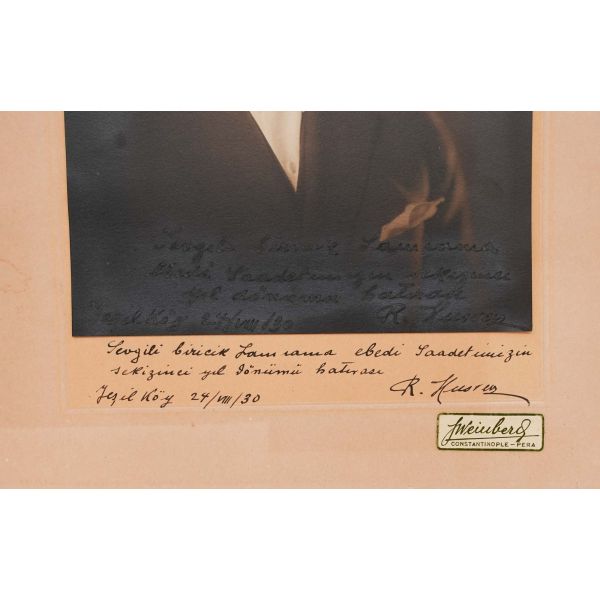 Sevgili biricik Lamiama
ebedi Saadetimizin sekizinci
yıl dönümü hatırası
Yeşil Köy 24/VIII/30 R. Husrev
Sevgili biricik ebedi Saadetimizin
sekizinci yıl dönümü hatırası
Yeşil Köy 24/VIII/30 R. Husrev
JWeinberg
CONSTANTINOPLE – PERA